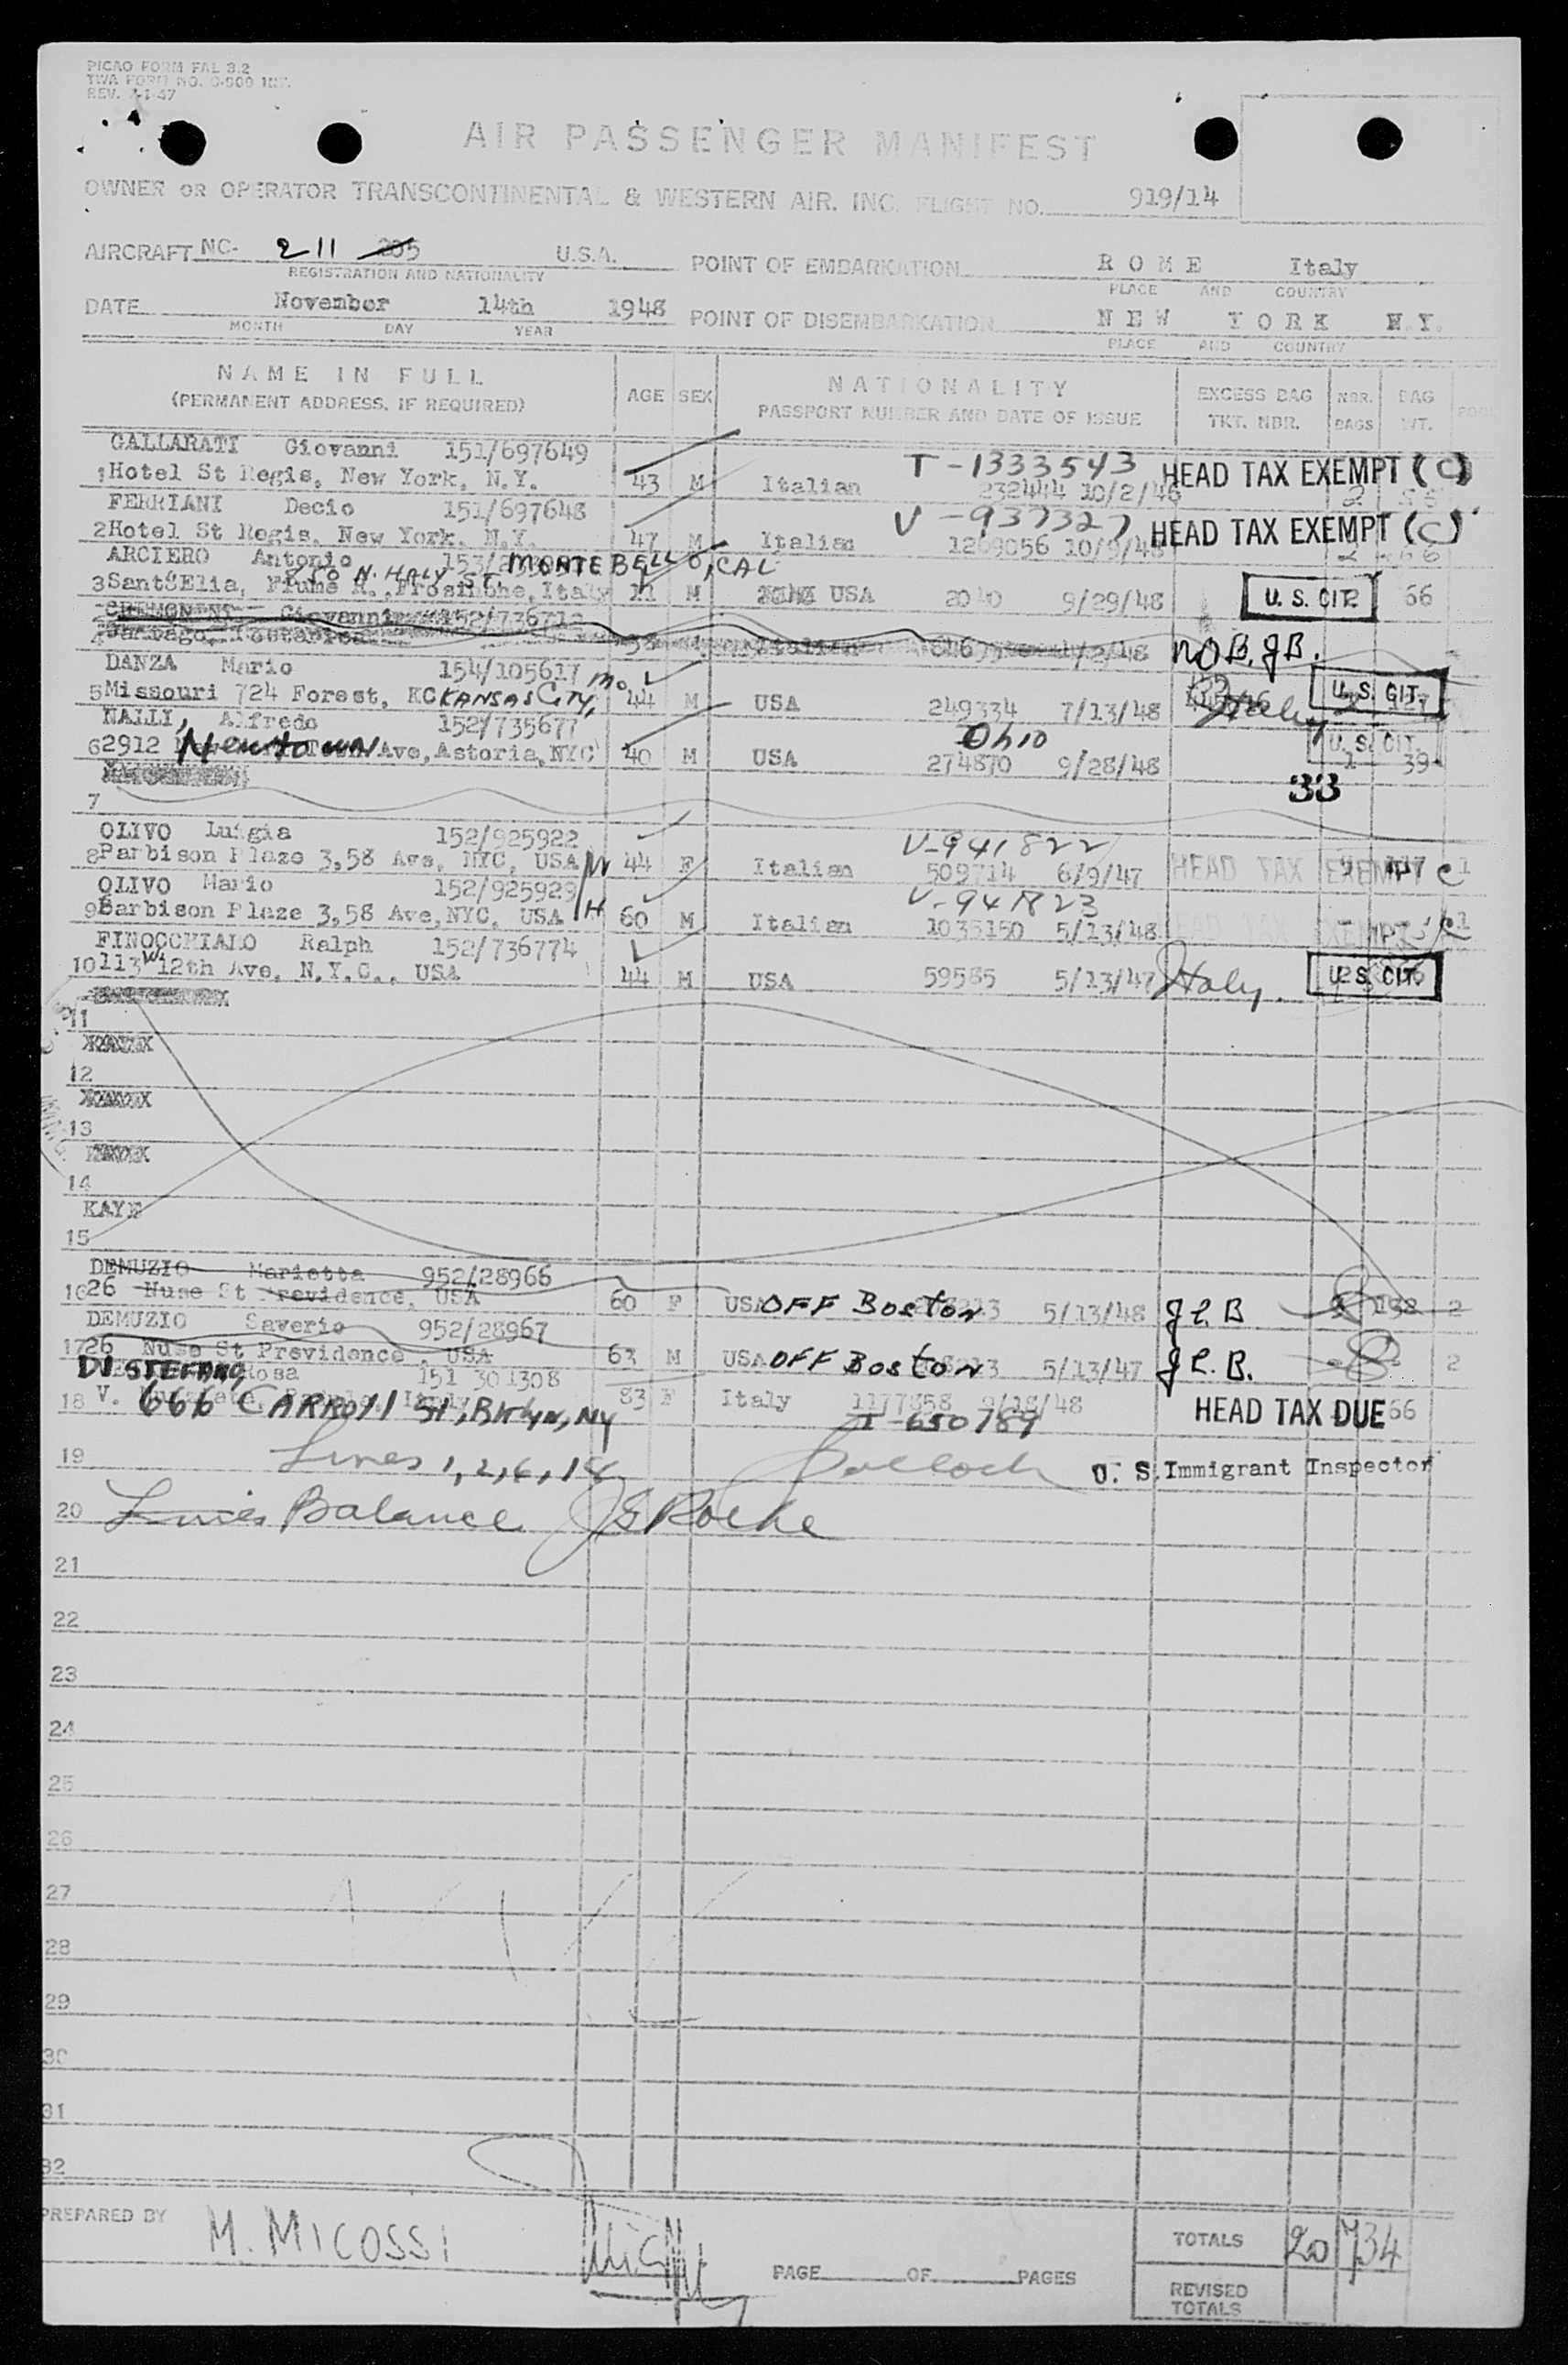 PICAO FORM FAL 3.2
TWA FORM NO. O-900 INT.
REV. 7-1-47
AIR PASSENGER MANIFEST
OWNER OR OPERATOR TRANSCONTINENTAL & WESTERN AIR. INC. FLIGHT NO. 919/14
AIRCRAFT NC- 211 205 U.S.A. POINT OF EMBARKATION ROME Italy
REGISTRATION AND NATIONALITY PLACE AND COUNTRY
DATE November 14th 1948 POINT OF DISEMBARKATION NEW YORK N.Y.
MONTH DAY YEAR PLACE AND COUNTRY
NAME IN FULL AGE SEX NATIONALITY EXCESS BAG NBR. BAG
(PERMANENT ADDRESS, IF REQUIRED) PASSPORT NUMBER AND DATE OF ISSUE TKT. NBR. BAGS WT.
GALLARATI Giovanni 151/697649 T-1333543 HEAD TAX EXEMPT (C)
1 Hotel St Regis, New York, N.Y. 43 M Italian 232444 10/2/46 2
FERRIANI Decio 151/697648 V-937327 HEAD TAX EXEMPT (C)
2 Hotel St Regis, New York, N.Y. 47 M Italian 1269056 10/9/48 2
ARCIERO Antonio N. HALY ST. MONTEBELLO, CAL
3 Sant'Elia, Fiume R., Frosinone, Italy M USA 2040 9/29/48 U. S. CIT. 66
Giovanni 152/736712
4 38 Italian NO B. J B.
DANZA Mario 154/105617 Mo.
5 Missouri 724 Forest, KC KANSAS CITY, 44 M USA 249334 7/13/48 Italy U. S. CIT.
NALLI, Alfredo 152/735677 Ohio U. S. CIT.
6 2912 Newtown Ave, Astoria, NYC 40 M USA 274870 9/28/48 1 39
33
7
OLIVO Luigia 152/925922 V-941822
8 Barbison Plaze 3,58 Ave, NYC, USA W 44 F Italian 509714 6/9/47 HEAD TAX EXEMPT C 1
OLIVO Mario 152/925929 V-941823
9 Barbison Plaze 3,58 Ave, NYC, USA H 60 M Italian 1035150 5/13/48 HEAD TAX EXEMPT C 1
FINOCCHIALO Ralph 152/736774
10 113 W 12th Ave, N.Y.C., USA 44 M USA 59585 5/13/47 Italy. U. S. CIT.
11
12
13
14
KAYE
15
DEMUZIO Marietta 952/28966
16 26 Huse St Previdence, USA 60 F USA OFF Boston 5/13/48 J L B 2
DEMUZIO Saverio 952/28967
17 26 Nuse St Previdence, USA 63 M USA OFF Boston 5/13/47 J L. B. 2
DI STEFANO Rosa 151 301308
18 V. 666 CARROLL ST, BKLYN, NY 83 F Italy 1177858 9/18/48 HEAD TAX DUE 66
I-650789
19 Lines 1, 2, 6, 18 U. S. Immigrant Inspector
20 Lines Balance J G Roche
21
22
23
24
25
26
27
28
29
30
31
32
PREPARED BY M. MICOSSI
TOTALS 20 734
PAGE OF PAGES
REVISED
TOTALS